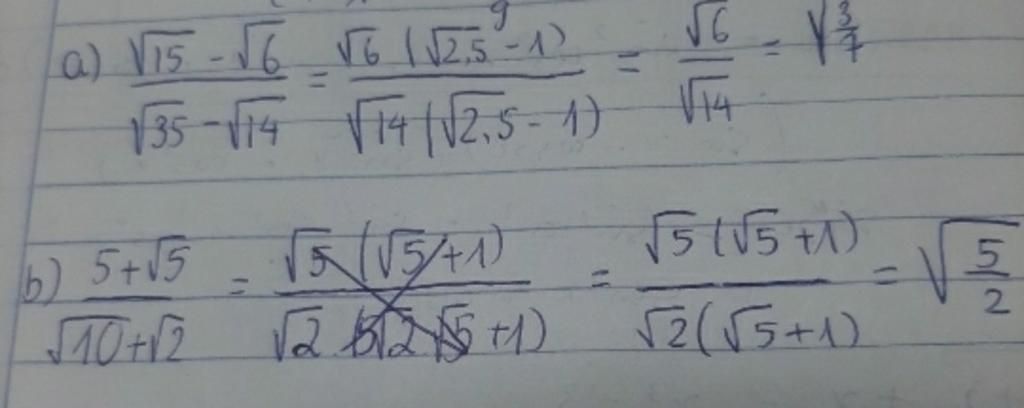 a) (√15 - √6)/(√35 - √14) = (√6 (√2,5 - 1))/(√14 (√2,5 - 1)) = √6/√14 = √(3/7)
b) (5+√5)/(√10+√2) = (√5 (√5+1))/(√2 √5+1) = (√5 (√5+1))/(√2 (√5+1)) = √(5/2)